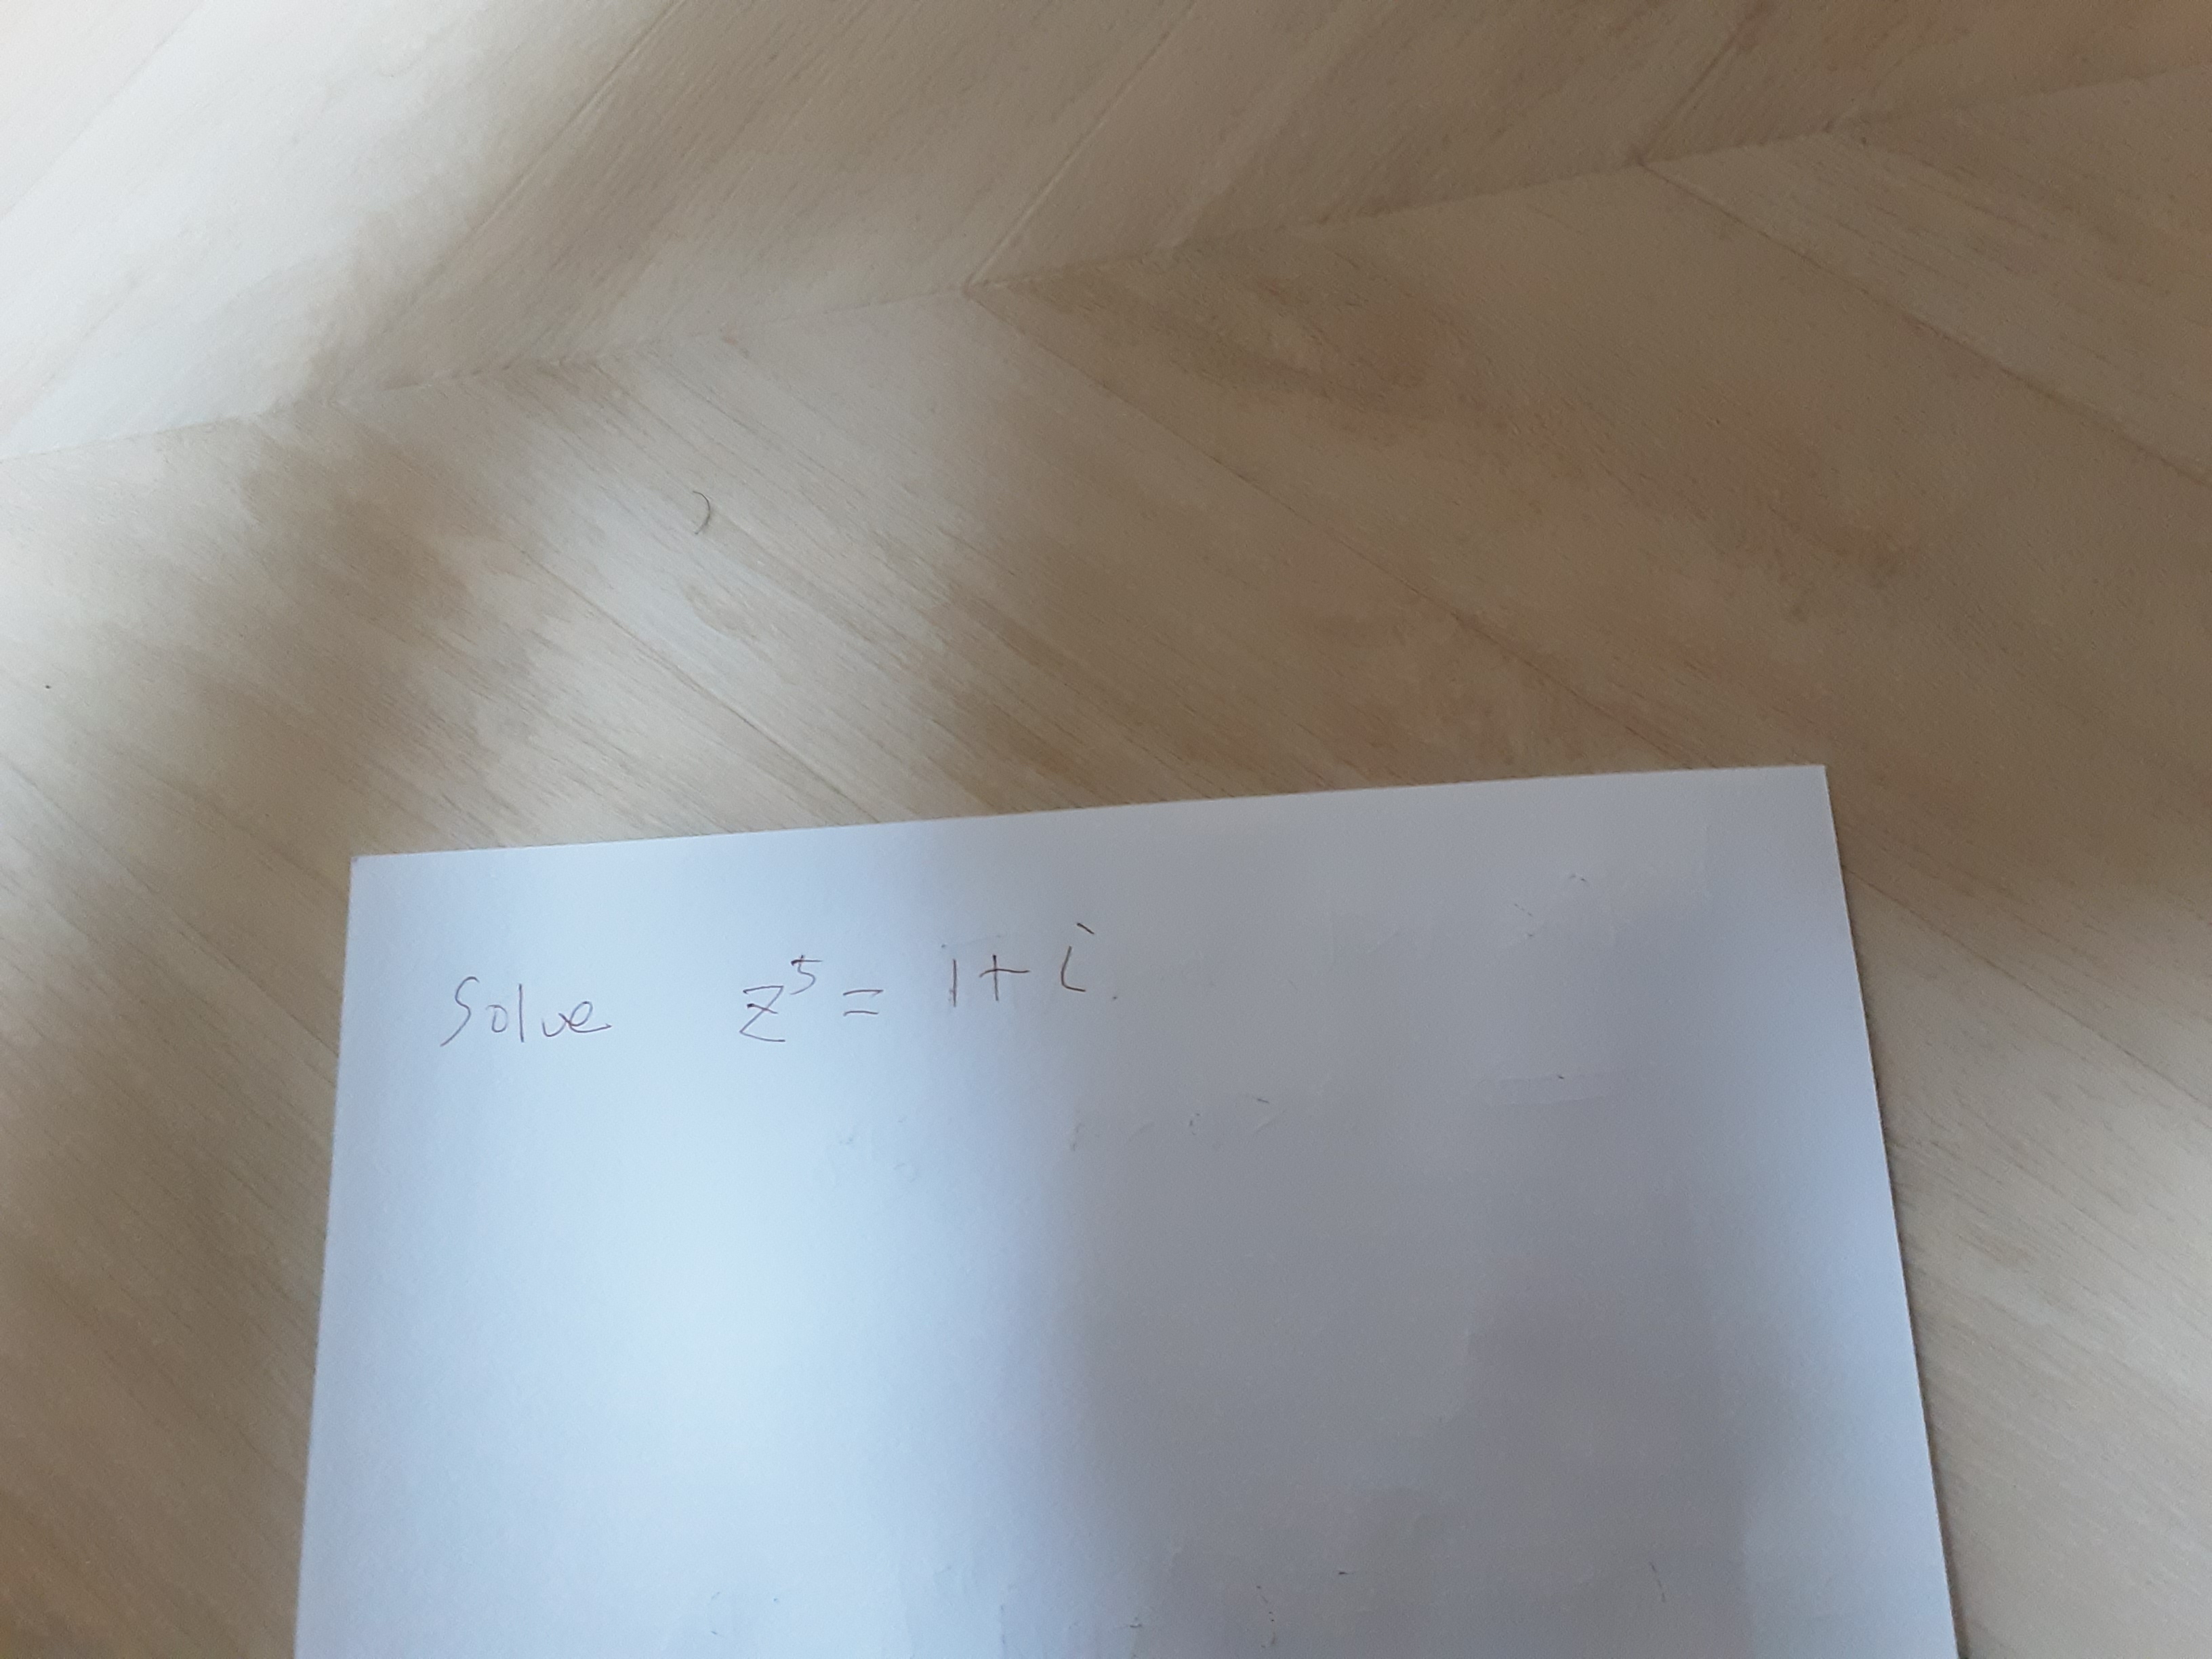 Solve z⁵ = 1+i.